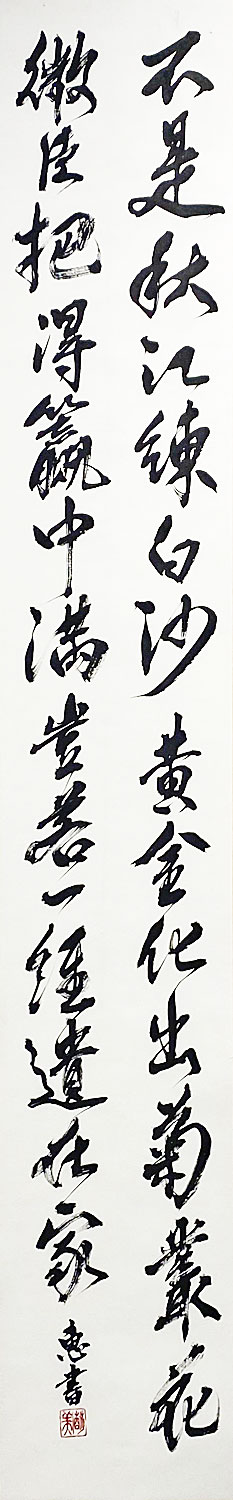 不是秋江練白沙黄金化出菊叢花
微臣把得籝中満豈若一経遺在家
恵書